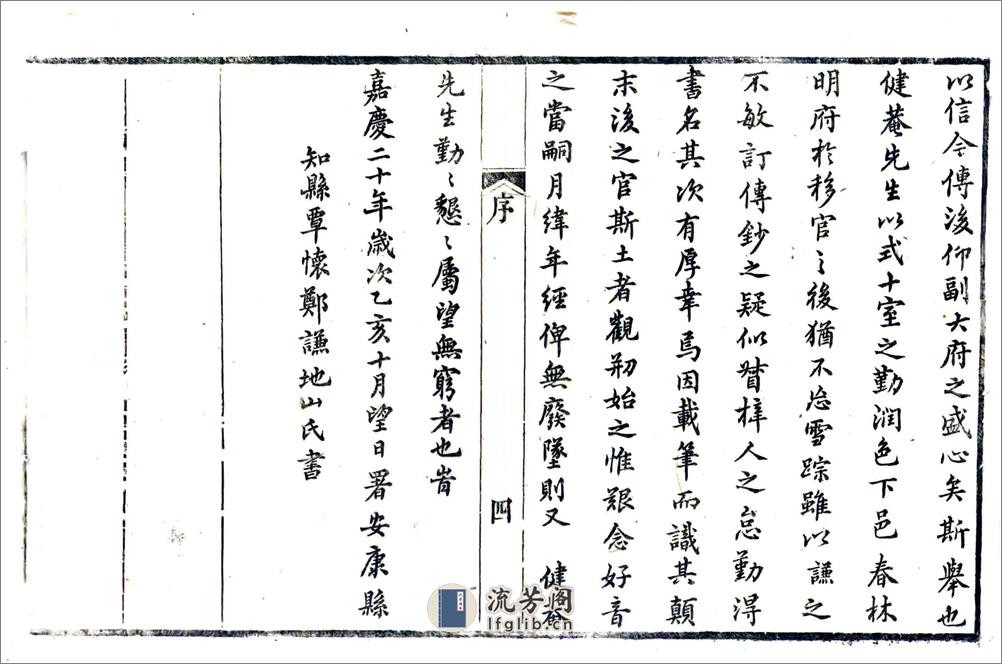 以信今傳後仰副大府之盛心矣斯舉也
健菴先生以式十室之勤潤色下邑春林
明府於移官之後猶不忘雪踪雖以謙之
不敏訂傳鈔之疑似督梓人之怠勤得
書名其次有厚幸焉因載筆而識其顛
末後之官斯土者觀刱始之惟艱念好音
之當嗣月緯年經俾無廢墜則又 健菴
序
四
先生勤〻懇〻屬望無窮者也旹
嘉慶二十年歲次乙亥十月望日署安康縣
知縣覃懷鄭謙地山氏書
流芳阁
lfglib.cn